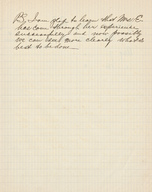 P.S. I am glad to learn that Mrs. C
has come through her experience
successfully and now possibly
we can see more clearly what is
best to be done —